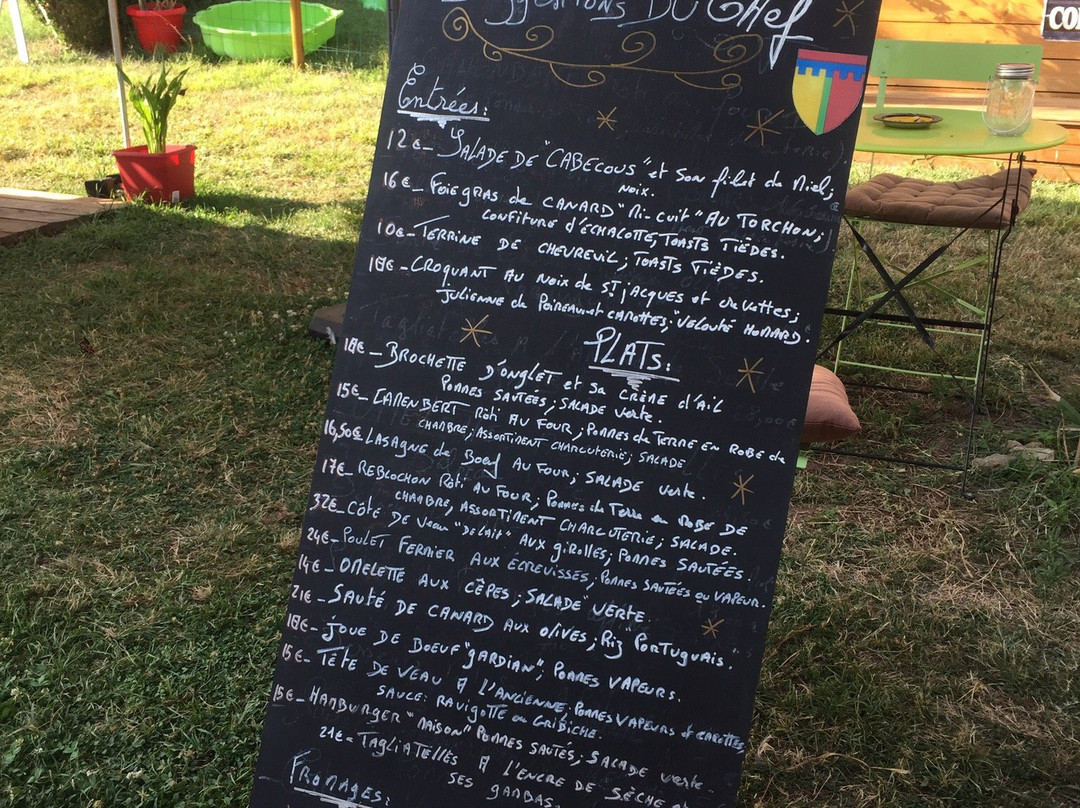 Suggestions DU Chef
CO
Entrées:
12€_ SALADE DE "CABECOUS" et son filet de Miel;
NOIX.
16€_ FOIEGRAS de CANARD "Mi-cuit" AU TORCHON;
CONFITURE d'ÉCHALOTTE, TOASTS TIÈDES.
10€_ TERRINE DE CHEVREUIL; TOASTS TIÈDES.
18€_ CROQUANT AU NOIX de ST JACQUES et crevettes;
Julienne de Poireaux et CAROTTES; "VELOUTÉ HOMARD.
PLATS:
18€_ BROCHETTE D'ONGLET et sa CRÈME d'AIL
POMMES SAUTÉES; SALADE verte.
15€_ CAMENBERT Rôti AU FOUR; POMMES de TERRE EN ROBE de
CHAMBRE; ASSORTIMENT CHARCUTERIE; SALADE
16,50€ LASAGNE de Boeuf AU FOUR; SALADE verte.
17€_ REBLOCHON Rôti AU FOUR; POMMES de Terre en ROBE DE
CHAMBRE, ASSORTIMENT CHARCUTERIE; SALADE.
32€_ CÔTE DE Veau "DE LAIT" AUX GIROLLES; POMMES SAUTÉES.
24€_ POULET FERMIER AUX ÉCREVISSES; POMMES SAUTÉES ou VAPEUR.
14€_ OMELETTE AUX CÊPES; SALADE VERTE.
21€_ SAUTÉ DE CANARD AUX OLIVES; Riz "PORTUGUAIS."
18€_ JOUE DE BOEUF "GARDIAN"; POMMES VAPEURS.
15€_ TÊTE DE VEAU A L'ANCIENNE; POMMES VAPEURS et CAROTTES,
SAUCE: RAVIGOTTE ou GRIBICHE.
15€_ HAMBURGER "MAISON" POMMES SAUTÉS; SALADE verte_
21€_ TAGLIATELLES A L'ENCRE DE SÈCHE et
SES GAMBAS.
FROMAGES: